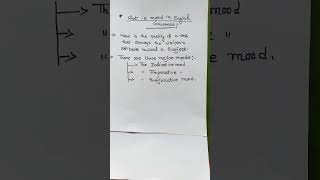 • What is mood in English
Grammar?
→ Mood is the quality of a verb
that conveys the writer's
attitude toward a subject.
• There are three major moods:
→ The Indicative mood
→ " Imperative "
→ " Subjunctive mood.